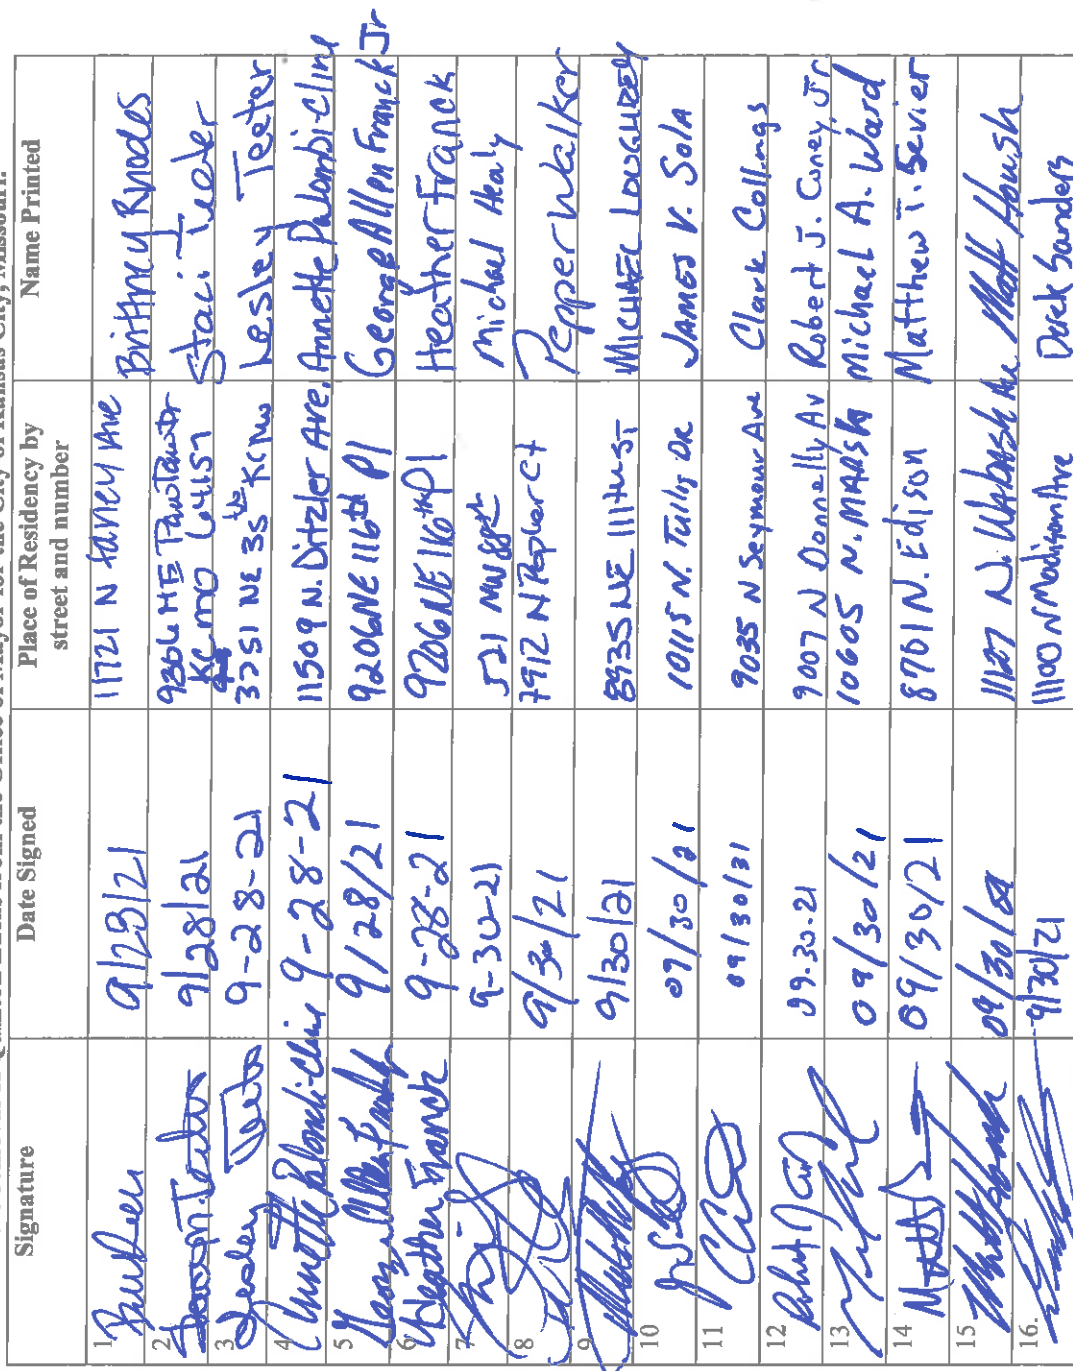 Signature Date Signed Place of Residency by street and number Name Printed
1. 9/28/21 11721 N Taney Ave Brittney Rhodes
2. 9/28/21 9306 NE Pawtawtr KC mo 64157 Staci Teeter
3. Lesley Teeter 9-28-21 3751 NE 35th KC Mo Lesley Teeter
4. Annette Palombi-Cline 9-28-21 11509 N. Ditzler Ave. Annette Palombi-Cline
5 George Allen Franck Jr 9/28/21 9206 NE 116th Pl George Allen Franck Jr
6. Heather Franck 9-28-21 9206 NE 116th Pl Heather Franck
7. 9-30-21 521 NW 88th Michael Healy
8 9/30/21 7912 N Poplar Ct Pepper Walker
9. 9/30/21 8935 NE 111th ST MICHAEL
10 09/30/21 10115 N. Tullis DR JAMES V. SOLA
11 09/30/31 9035 N Seymour Ave Clark Collings
12 09.30.21 9007 N Donnelly Av Robert J. Coney, Jr
13 09/30/21 10605 N. Michael A. Ward
14 09/30/21 8761 N. Edison Matthew T. Sevier
15. 09/30/21 N. Wabash Ave Matt Housh
16. 9/30/21 11100 N Madison Ave Derek Sanders